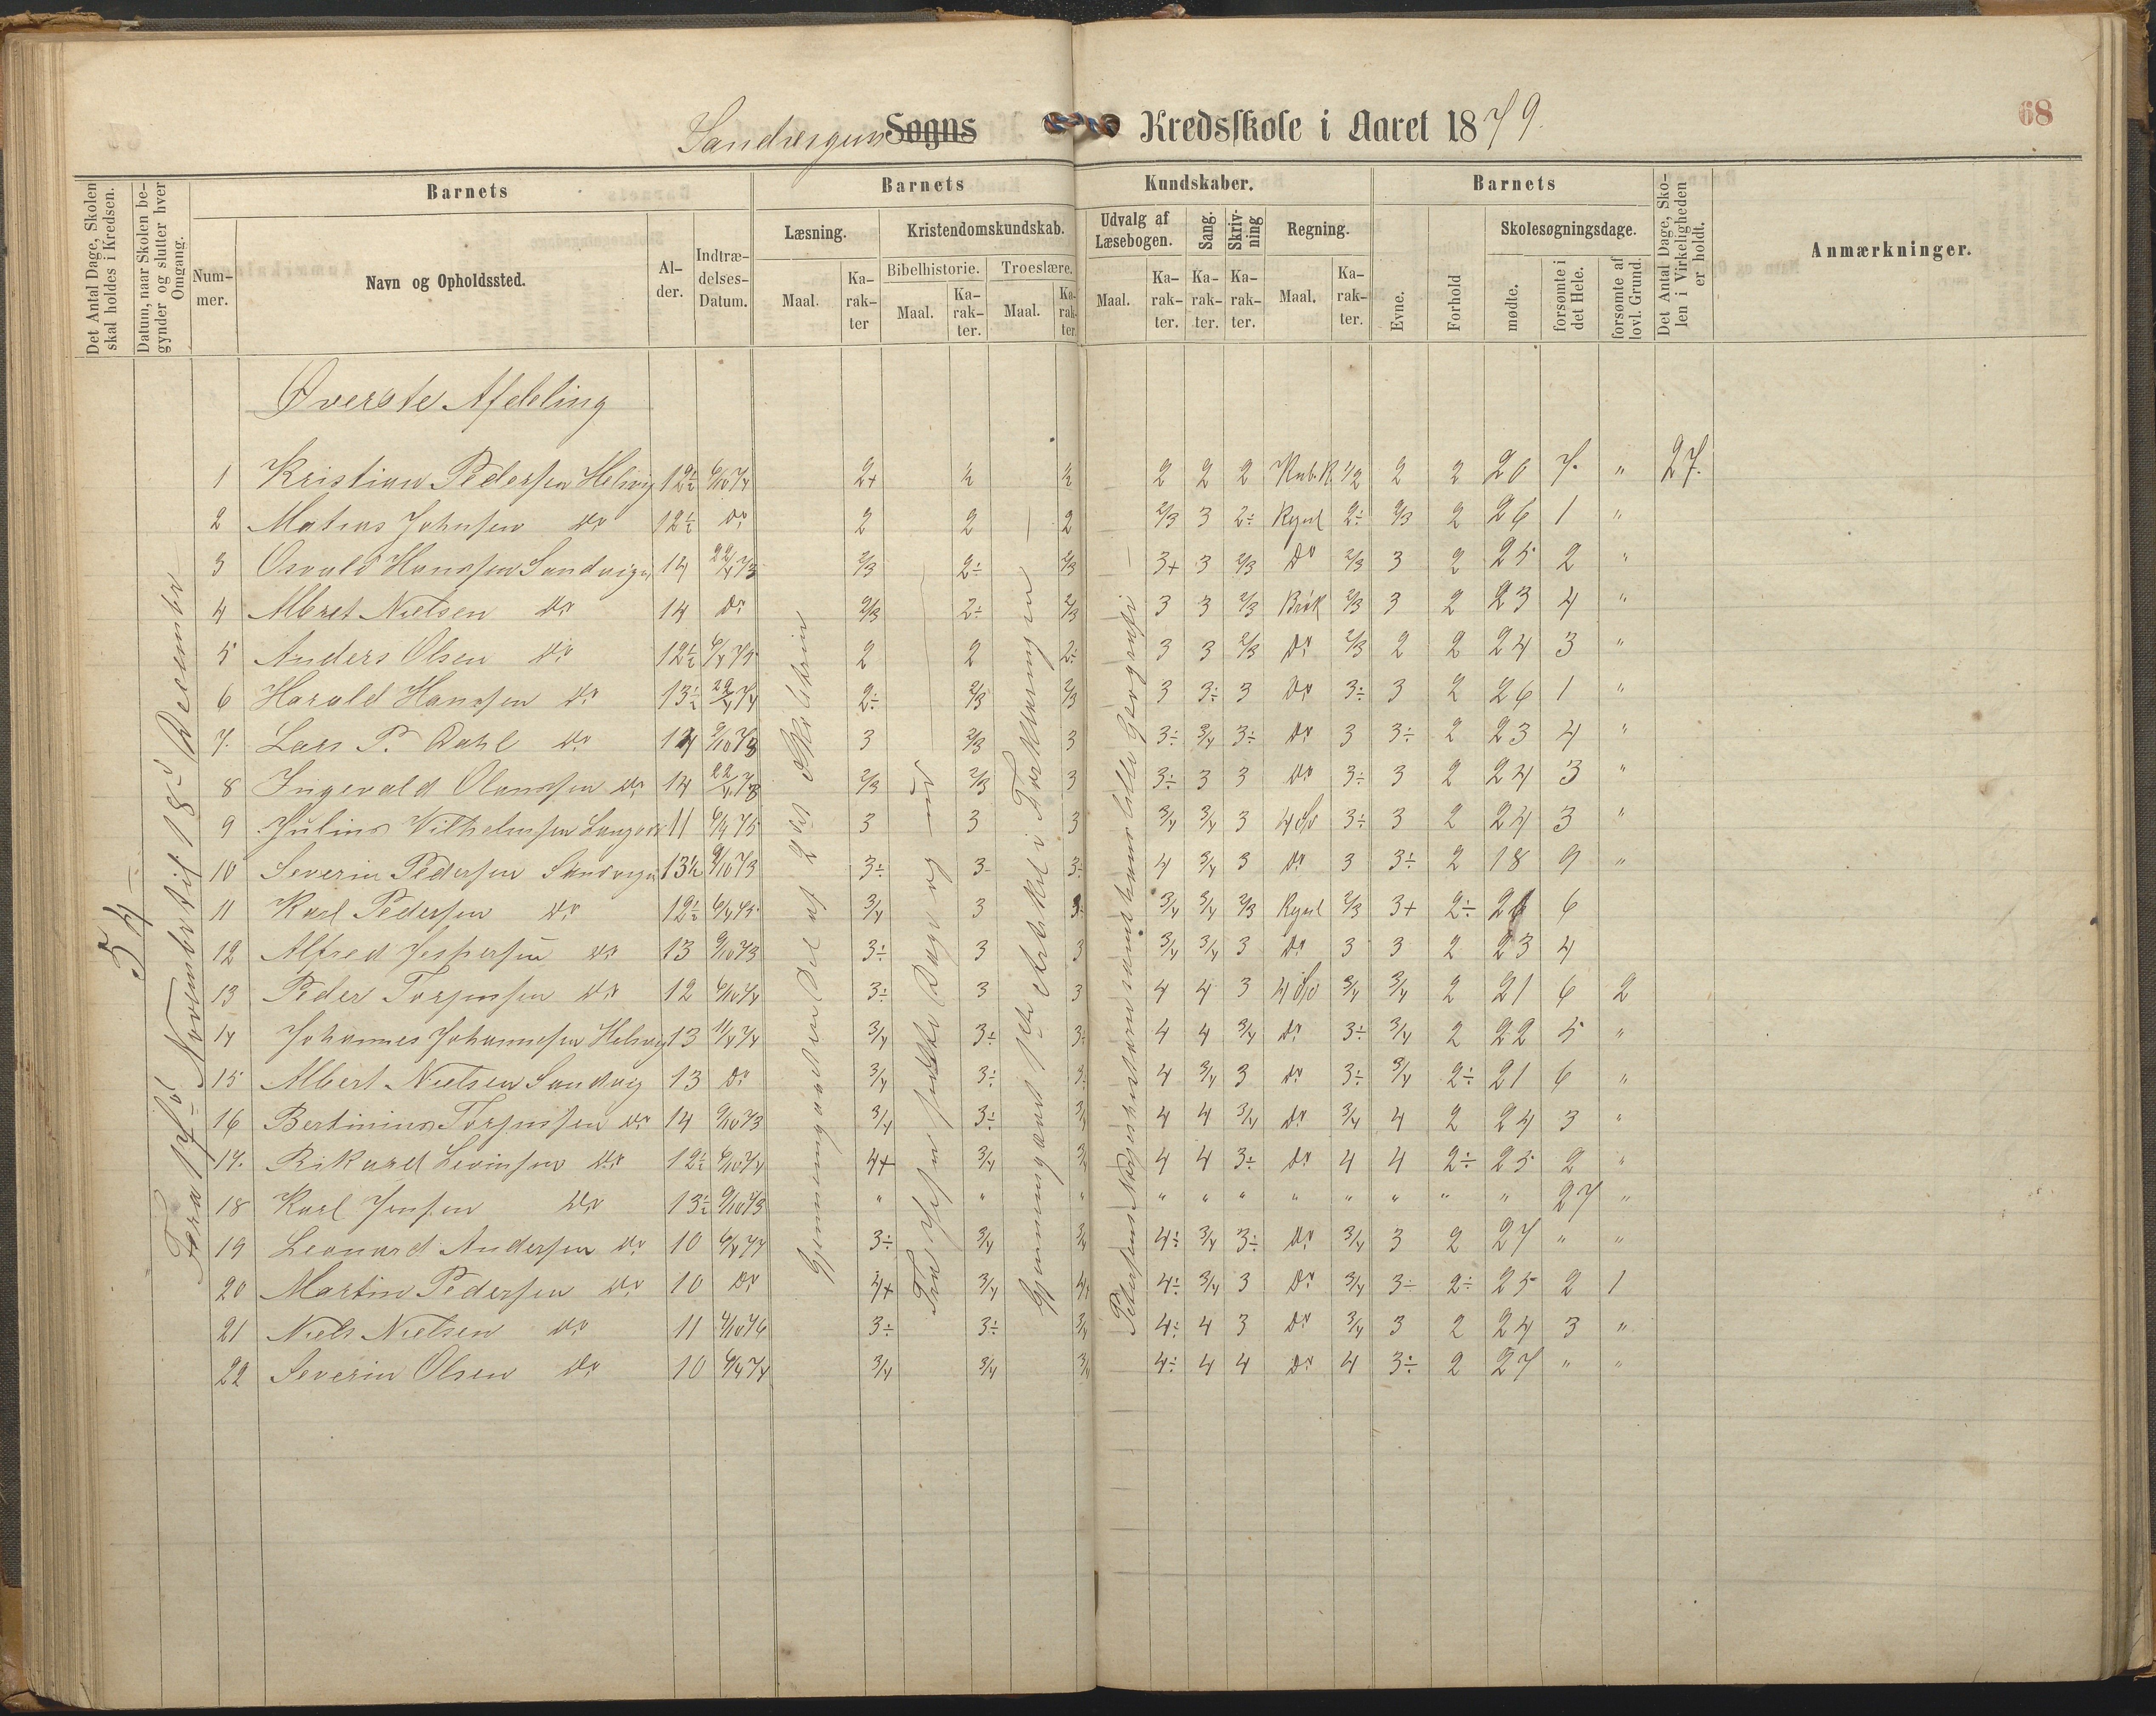 68
Sandvigens Sogns Kredsskole i Aaret 1879.
Det Antal Dage, Skolen skal holdes i Kredsen.
Datum, naar Skolen begynder og slutter hver Omgang.
Barnets
Nummer.
Navn og Opholdssted.
Alder.
Indtrædelses-Datum.
Barnets Kundskaber.
Læsning.
Maal.
Karakter
Kristendomskundskab.
Bibelhistorie.
Maal.
Karakter.
Troeslære.
Maal.
Karakter.
Udvalg af Læsebogen.
Maal.
Karakter.
Sang.
Karakter.
Skrivning
Karakter.
Regning.
Maal.
Karakter.
Barnets
Evne.
Forhold
Skolesøgningsdage.
mødte.
forsømte i det Hele.
forsømte af lovl. Grund.
Det Antal Dage, Skolen i Virkeligheden er holdt.
Anmærkninger.
54
Fra 17de November til 18de December
Øverste Afdeling
1 Kristian Pedersen Helvig 12½ 6/10 74 2+ ½ ½ 2 2 2 ½ 2 2 20 7 " 27.
2 Matias Johnsen do 12½ do 2 2 2 2/3 3 2÷ 2÷ 2/3 2 26 1 "
3 Osvald Hanssen Sandvigen 14 22/4 73 2/3 2÷ 2/3 3+ 3 2/3 do 2/3 3 2 25 2 "
4 Albret Nielsen do 14 do 2/3 2÷ 2/3 3 3 2/3 Brøk 2/3 3 2 23 4 "
5 Anders Olsen do 12½ 6/4 75 2 2 2÷ 3 3 2/3 do 2/3 2 2 24 3 "
6 Harald Hanssen do 13½ 22/4 74 2÷ 2/3 2/3 3 3÷ 3 do 3÷ 3 2 26 1 "
7. Lars P. Dahl do 14 9/10 73 3 2/3 3 3÷ 3/4 3÷ do 3 3÷ 2 23 4 "
8 Ingevald Olaussen do 14 22/4 73 2/3 2/3 3 3÷ 3 3 do 3÷ 3 2 24 3 "
9 Julius Vilhelmsen 11 6/4 75 3 3 3 3/4 3/4 3 3÷ 3 2 24 3 "
10 Severin Pedersen Sandvigen 13½ 9/10 73 3÷ 3 3÷ 4 3/4 3 do 3 3÷ 2 18 9 "
11 Karl Pedersen do 12½ 6/4 75 3/4 3 3÷ 3/4 3/4 2/3 2/3 3+ 2÷ 21 6
12 Alfred Jespersen do 13 9/10 73 3÷ 3 3 3/4 3/4 3 do 3 3 2 23 4
13 Peder Torjussen do 12 6/10 74 3÷ 3 3 4 4 3 3/4 3/4 2 21 6 2
14 Johannes Johannesen Helvig 13 11/4 74 3/4 3÷ 3÷ 4 4 3/4 do 3÷ 3/4 2 22 5 "
15 Albert Nielsen Sandvig 13 do 3/4 3÷ 3÷ 4 3/4 3 do 3÷ 3/4 2÷ 21 6 "
16 Bertinius Torjussen do 14 9/10 73 3/4 3÷ 3/4 4 4 3/4 do 3/4 4 2 24 3 "
17. Rikard Levinsen do 12½ 6/10 74 4+ 3/4 3/4 4 4 3÷ do 4 4 2÷ 25 2 "
18 Karl Jensen do 13½ 9/10 73 " " " " " " " " " " " 27 "
19 Leonard Andersen do 10 6/4 77 3÷ 3/4 3/4 4÷ 3/4 3÷ do 3/4 3 2 27 " "
20 Martin Pedersen do 10 do 4+ 3/4 4+ 4÷ 3/4 3 do 3/4 3÷ 2÷ 25 2 1
21 Niels Nielsen do 11 4/10 76 3÷ 3÷ 3/4 4÷ 4 3 do 3/4 3 2 24 3 "
22 Severin Olsen do 10 6/4 74 3/4 3/4 3/4 4÷ 4 4 do 4 3÷ 2 27 " "
Gjennemgaaet en Del af 2det Skoletrin
Fra Jesu sidste Dage og ud
Gjennemgaaet 1ste Artikel i Forklaringen
Petersens Norgeshistorie samt hans lille Geografi